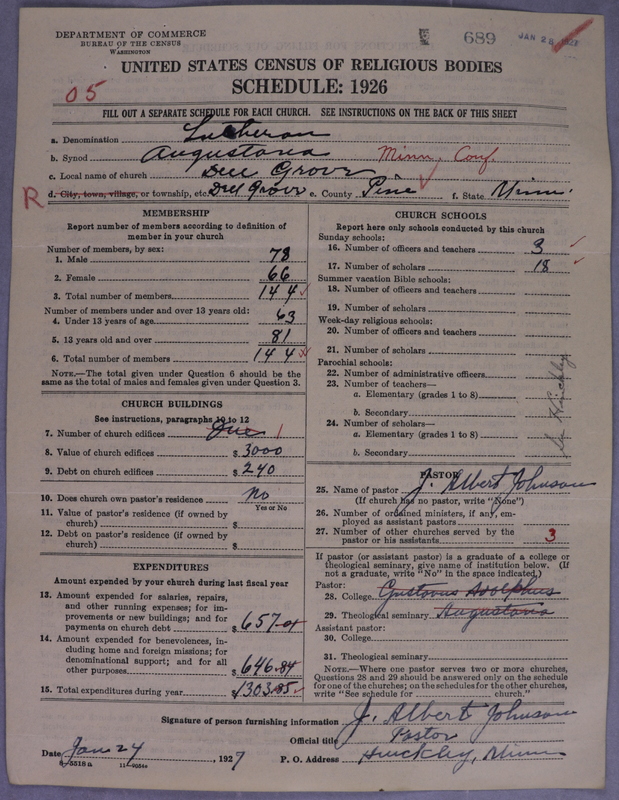 DEPARTMENT OF COMMERCE
BUREAU OF THE CENSUS
WASHINGTON
689
JAN 28 1927
UNITED STATES CENSUS OF RELIGIOUS BODIES
SCHEDULE: 1926
05
FILL OUT A SEPARATE SCHEDULE FOR EACH CHURCH. SEE INSTRUCTIONS ON THE BACK OF THIS SHEET
a. Denomination Lutheran
b. Synod Augustana Minn. Conf.
c. Local name of church Dell Grove
R d. City, town, village, or township, etc. Dell Grove e. County Pine f. State Minn.
MEMBERSHIP
Report number of members according to definition of
member in your church
Number of members, by sex:
1. Male 78
2. Female 66
3. Total number of members 144
Number of members under and over 13 years old:
4. Under 13 years of age 63
5. 13 years old and over 81
6. Total number of members 144
NOTE.—The total given under Question 6 should be the
same as the total of males and females given under Question 3.
CHURCH BUILDINGS
See instructions, paragraphs 10 to 12
7. Number of church edifices One 1
8. Value of church edifices $ 3000
9. Debt on church edifices $ 240
10. Does church own pastor's residence No
Yes or No
11. Value of pastor's residence (if owned by
church) $
12. Debt on pastor's residence (if owned by
church) $
EXPENDITURES
Amount expended by your church during last fiscal year
13. Amount expended for salaries, repairs,
and other running expenses; for im-
provements or new buildings; and for
payments on church debt $ 657.01
14. Amount expended for benevolences, in-
cluding home and foreign missions; for
denominational support; and for all
other purposes $ 646.84
15. Total expenditures during year $ 1303.85
CHURCH SCHOOLS
Report here only schools conducted by this church
Sunday schools:
16. Number of officers and teachers 3
17. Number of scholars 18
Summer vacation Bible schools:
18. Number of officers and teachers
19. Number of scholars
Week-day religious schools:
20. Number of officers and teachers
21. Number of scholars
Parochial schools:
22. Number of administrative officers
23. Number of teachers—
a. Elementary (grades 1 to 8)
b. Secondary
24. Number of scholars—
a. Elementary (grades 1 to 8)
b. Secondary
Hinckley
PASTOR
25. Name of pastor J. Albert Johnson
(If church has no pastor, write "None")
26. Number of ordained ministers, if any, em-
ployed as assistant pastors
27. Number of other churches served by the
pastor or his assistants 3
If pastor (or assistant pastor) is a graduate of a college or
theological seminary, give name of institution below. (If
not a graduate, write "No" in the space indicated.)
Pastor:
28. College Gustavus Adolphus
29. Theological seminary Augustana
Assistant pastor:
30. College
31. Theological seminary
NOTE.—Where one pastor serves two or more churches,
Questions 28 and 29 should be answered only on the schedule
for one of the churches; on the schedules for the other churches,
write "See schedule for church."
Signature of person furnishing information J. Albert Johnson
Official title Pastor
Date Jan 24, 1927 P. O. Address Hinckley, Minn
8-5518 a 11-9034